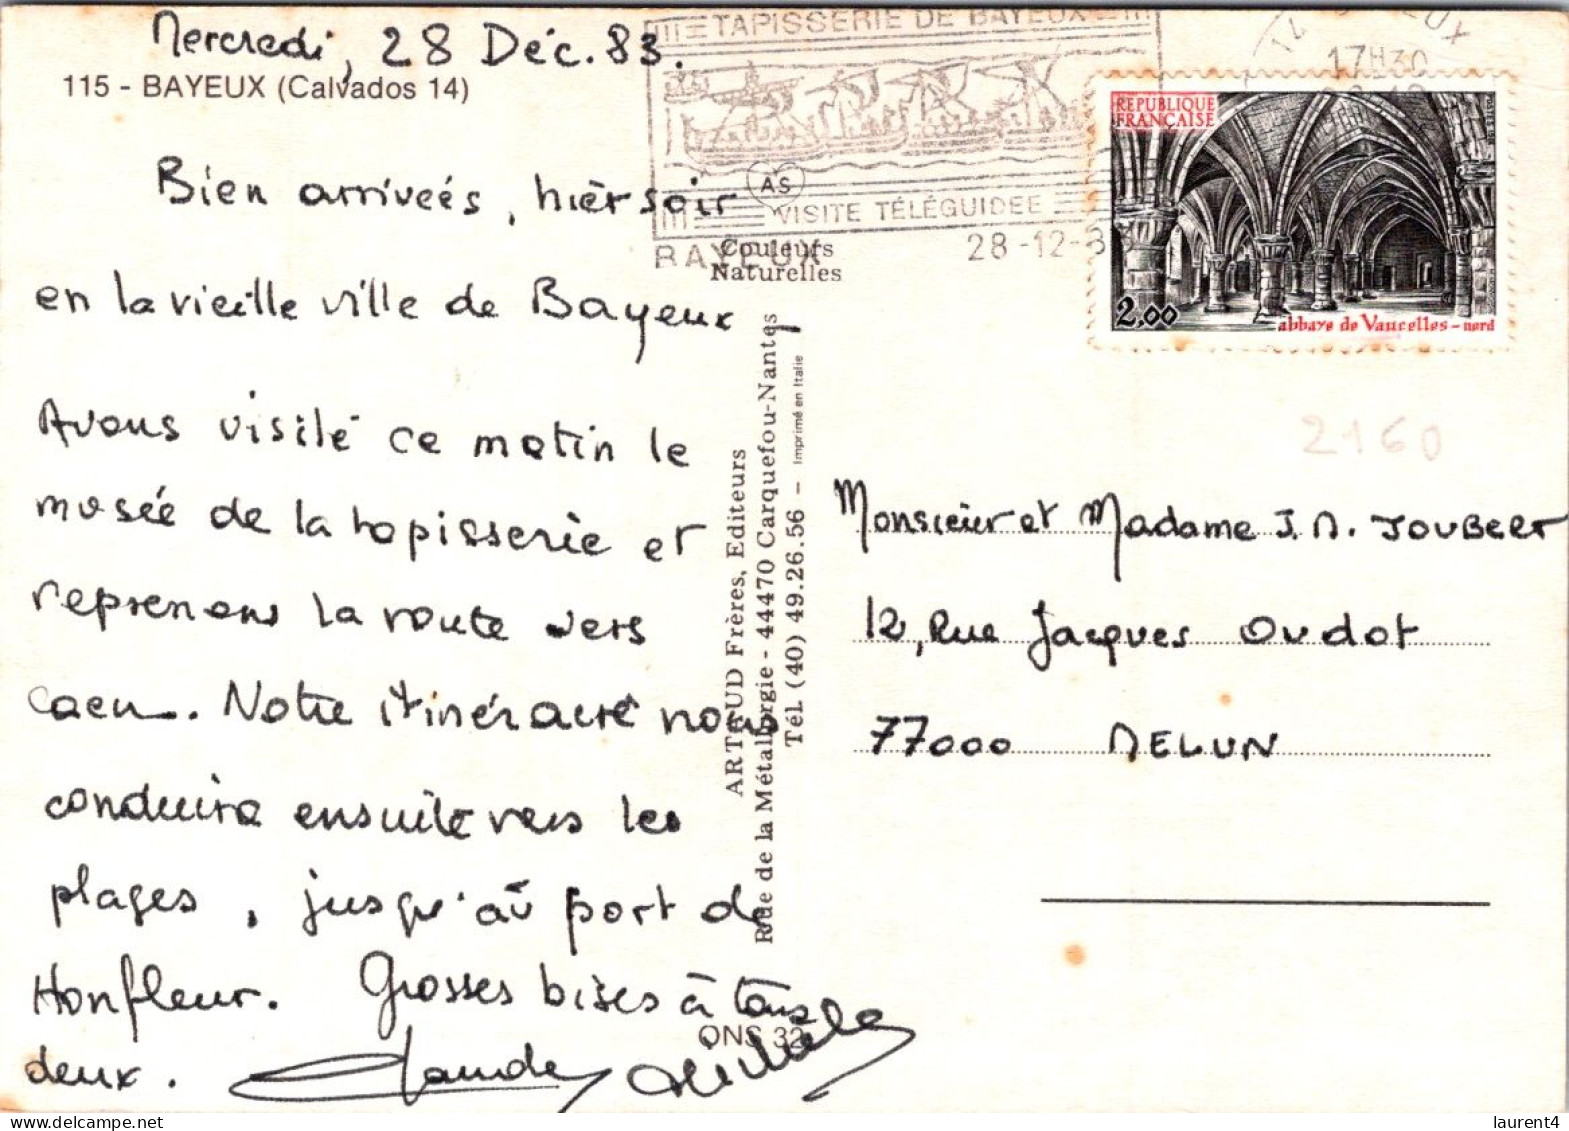 Mercredi, 28 Déc. 83.
115 - BAYEUX (Calvados 14)
Bien arriveés, hier soir
en la vieille ville de Bayeux
Avons visité ce matin le
musée de la tapisserie et
reprenons la route vers
Caen. Notre itinéraire nous
conduira ensuite vers les
plages, jusqu'au port de
Honfleur. Grosses bises à tous
deux. Claude Michèle
TAPISSERIE DE BAYEUX
AS
VISITE TÉLÉGUIDEE
BAYEUX
28-12-83
17H30
Couleurs
Naturelles
REPUBLIQUE
FRANÇAISE
2,00
abbaye de Vaucelles - nord
ARTAUD Frères, Editeurs
Rue de la Métallurgie - 44470 Carquefou-Nantes
Tél (40) 49.26.56 - Imprimé en Italie
ONS 32
2160
Monsieur et Madame J.M. JOUBERT
12, Rue Jacques Oudot
77000 MELUN
www.delcampe.net
laurent4